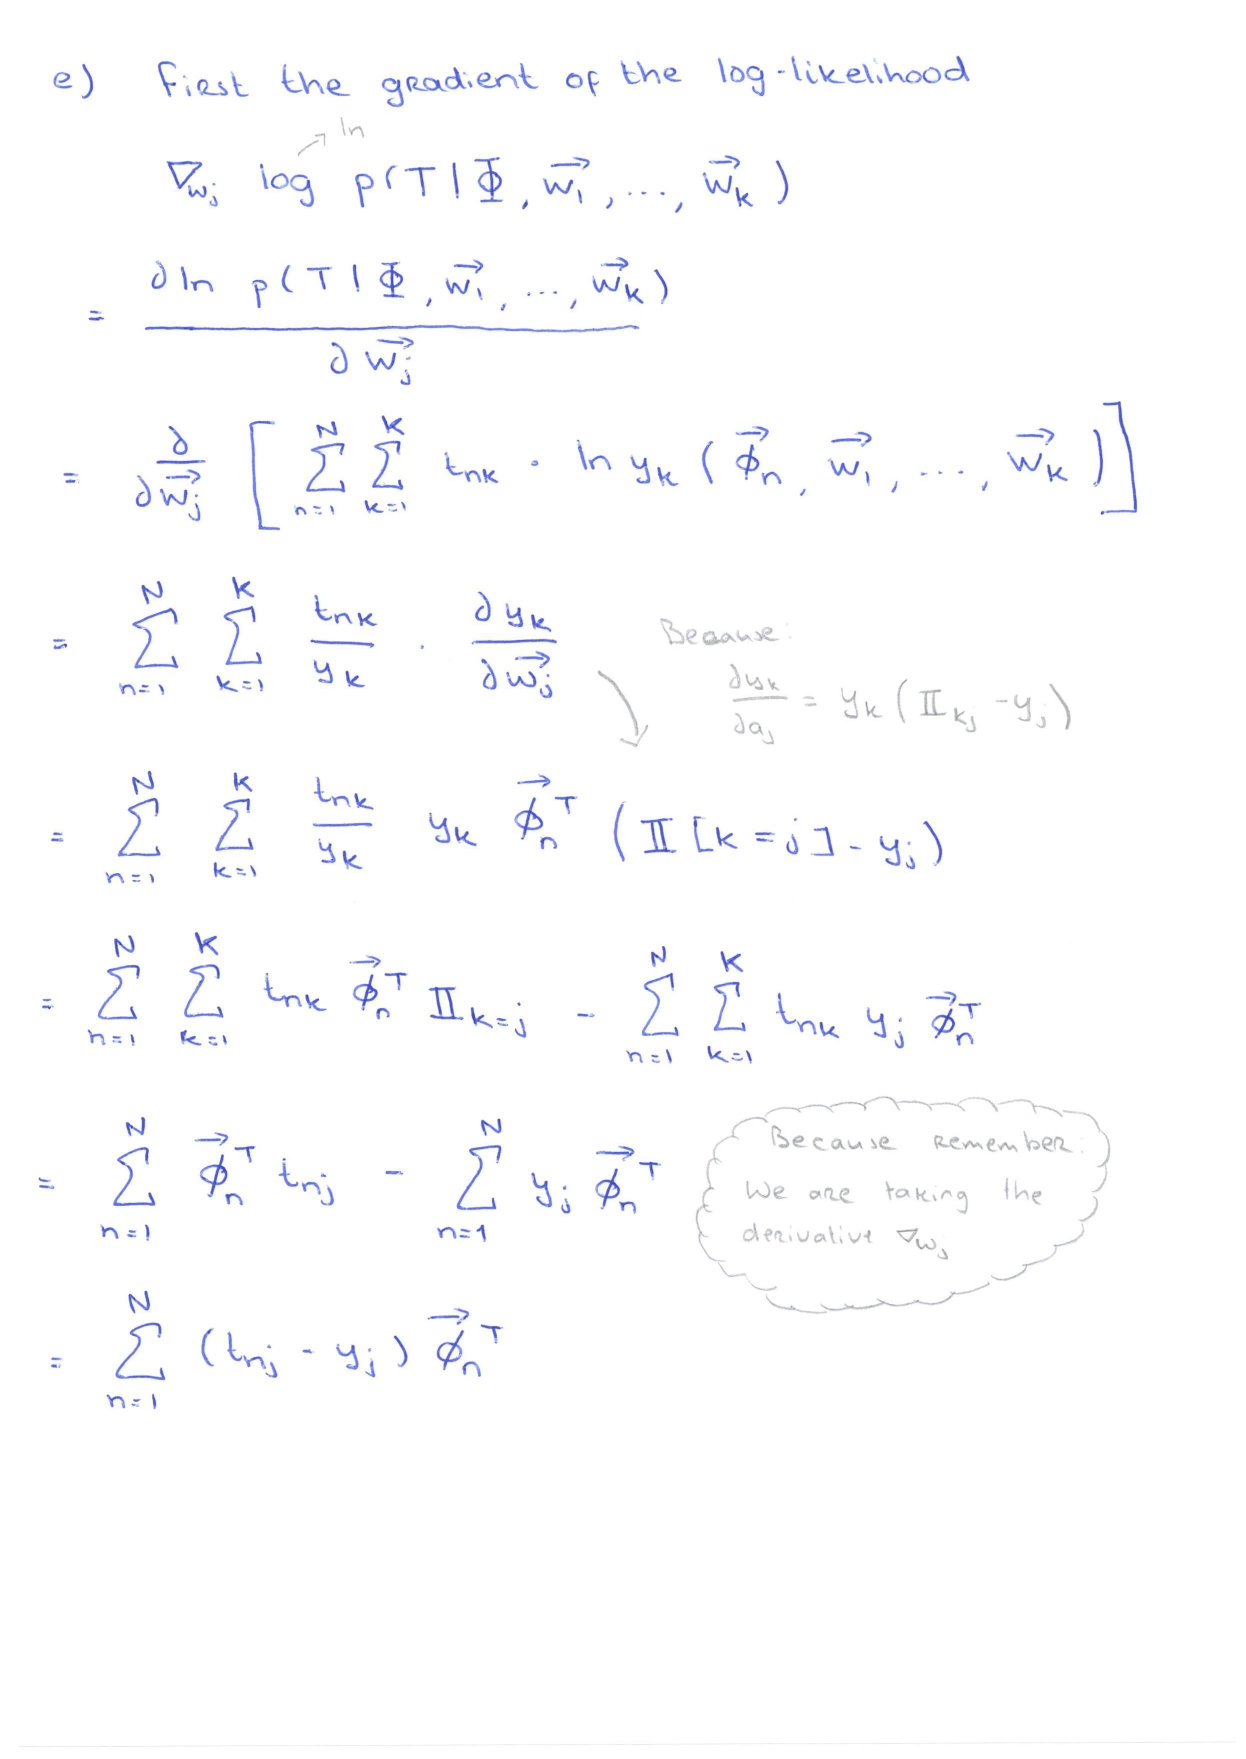 e) First the gradient of the log-likelihood
→ ln
∇_{w_j} log p(T | Φ, w⃗_1, ..., w⃗_K)
= ∂ ln p(T | Φ, w⃗_1, ..., w⃗_K) / ∂w⃗_j
= ∂/∂w⃗_j [ ∑_{n=1}^{N} ∑_{k=1}^{K} t_{nk} · ln y_k (ϕ⃗_n, w⃗_1, ..., w⃗_K) ]
= ∑_{n=1}^{N} ∑_{k=1}^{K} t_{nk}/y_k · ∂y_k/∂w⃗_j
Because:
∂y_k/∂a_j = y_k (𝕀_{kj} - y_j)
= ∑_{n=1}^{N} ∑_{k=1}^{K} t_{nk}/y_k y_k ϕ⃗_n^T (𝕀[k=j] - y_j)
= ∑_{n=1}^{N} ∑_{k=1}^{K} t_{nk} ϕ⃗_n^T 𝕀_{k=j} - ∑_{n=1}^{N} ∑_{k=1}^{K} t_{nk} y_j ϕ⃗_n^T
= ∑_{n=1}^{N} ϕ⃗_n^T t_{nj} - ∑_{n=1}^{N} y_j ϕ⃗_n^T
Because remember:
We are taking the
derivative ∇_{w_j}
= ∑_{n=1}^{N} (t_{nj} - y_j) ϕ⃗_n^T